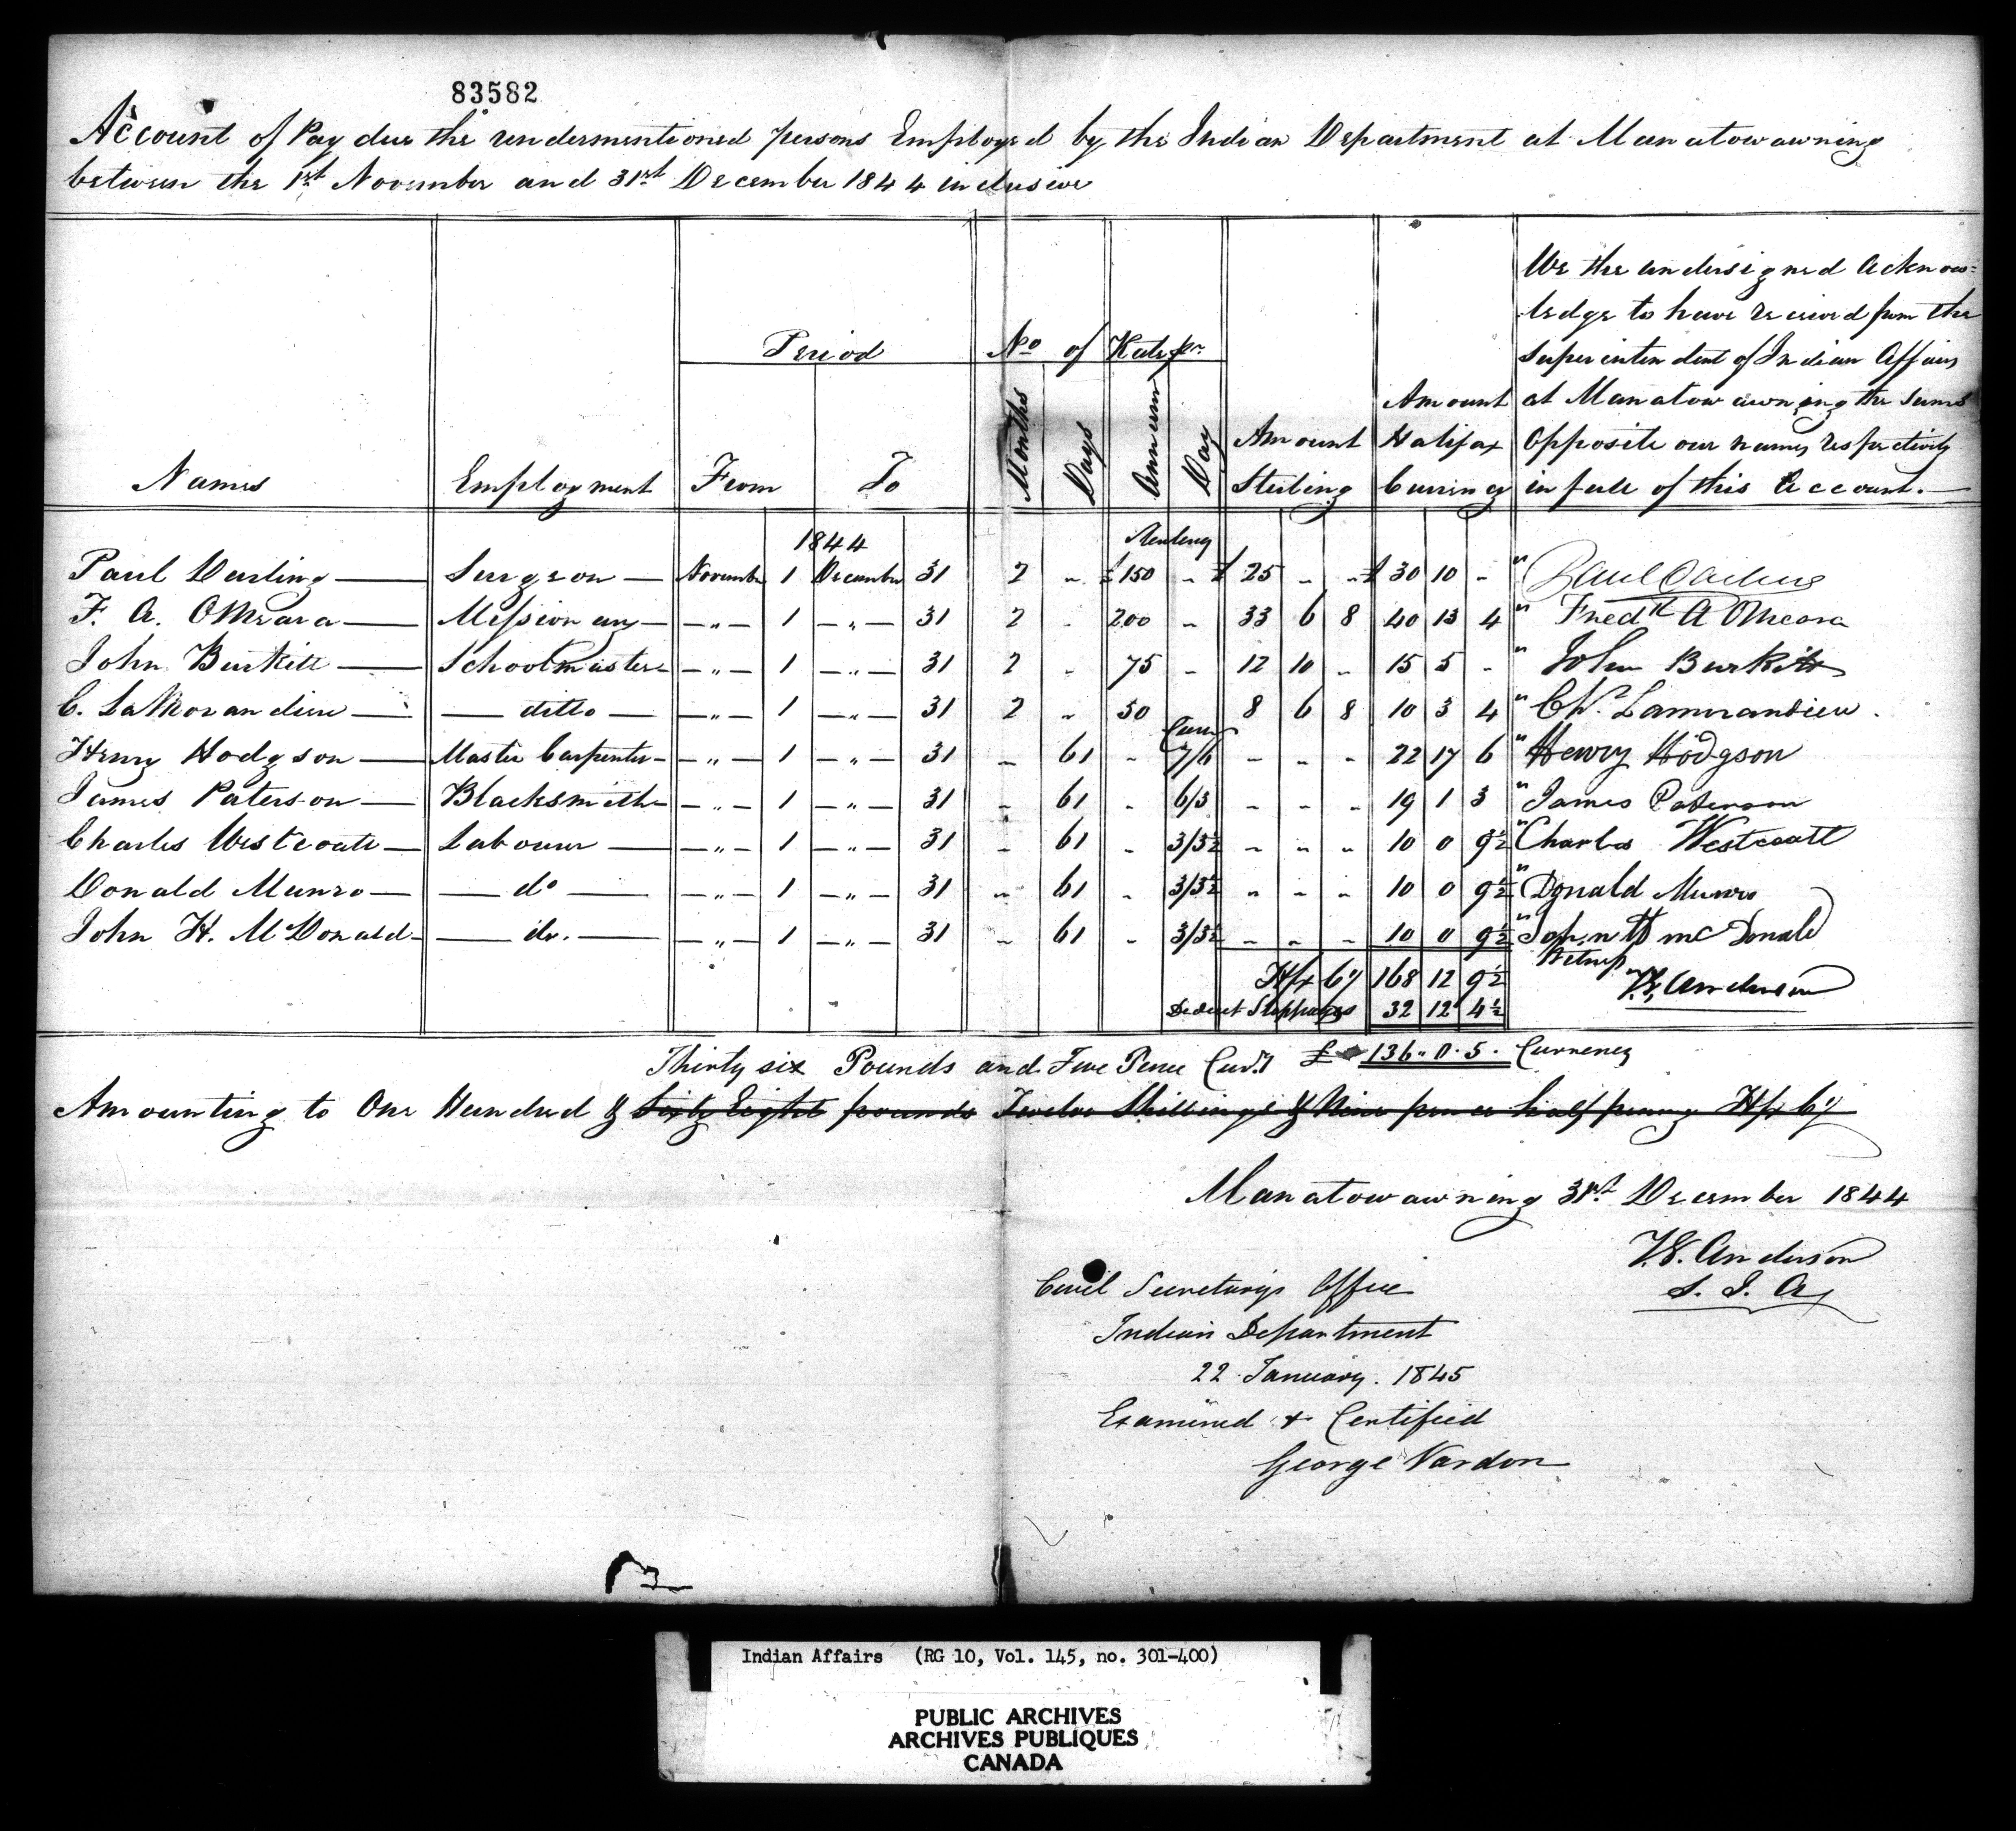 83582
Account of Pay due the undermentioned persons Employed by the Indian Department at Manatowawning
between the 1st November and 31st December 1844 inclusive
We the undersigned Acknow-
ledge to have received from the
Period No of Rate pr Superintendent of Indian Affairs
Amount at Manatowawning the sums
Months Days Annum Day Amount Halifax opposite our names respectively
Names Employment From To Sterling Currency in full of this Account.
1844 Sterling
Paul Darling Surgeon November 1 December 31 2 " £150 " £ 25 " " £ 30 10 " " Paul Darling
F. A. OMeara Missionary " 1 " 31 2 " 200 " 33 6 8 40 13 4 " Fredk A OMeara
John Burkitt Schoolmaster " 1 " 31 2 " 75 " 12 10 " 15 5 " " John Burkitt
C. LaMorandiere ditto " 1 " 31 2 " 50 8 6 8 10 3 4 " Ch. Lamorandiere.
Curry
Henry Hodgson Master Carpenter " 1 " 31 " 61 " 7/6 " " " 22 17 6 " Henry Hodgson
James Paterson Blacksmith " 1 " 31 " 61 " 6/3 " " " 19 1 3 " James Paterson
Charles Westcoate Labourer " 1 " 31 " 61 " 3/3½ " " " 10 0 9½ " Charles Westcoatt
Donald Munro do " 1 " 31 " 61 " 3/3½ " " " 10 0 9½ Donald Munro
John H. McDonald do. " 1 " 31 " 61 " 3/3½ " " " 10 0 9½ " John H mc Donald
Hfx Cy 168 12 9½ Witness T.G. Anderson
Deduct Stoppages 32 12 4½
£ 136.. 0. 5. Currency
Thirty six Pounds and Five Pence Curry
Amounting to One Hundred & Sixty Eight pounds Twelve Shillings & Nine pence half penny Hfx Cy
Manatowawning 31st December 1844
T.G. Anderson
S. I. A
Civil Secretary's Office
Indian Department
22 January. 1845
Examined & Certified
George Vardon
Indian Affairs (RG 10, Vol. 145, no. 301-400)
PUBLIC ARCHIVES
ARCHIVES PUBLIQUES
CANADA